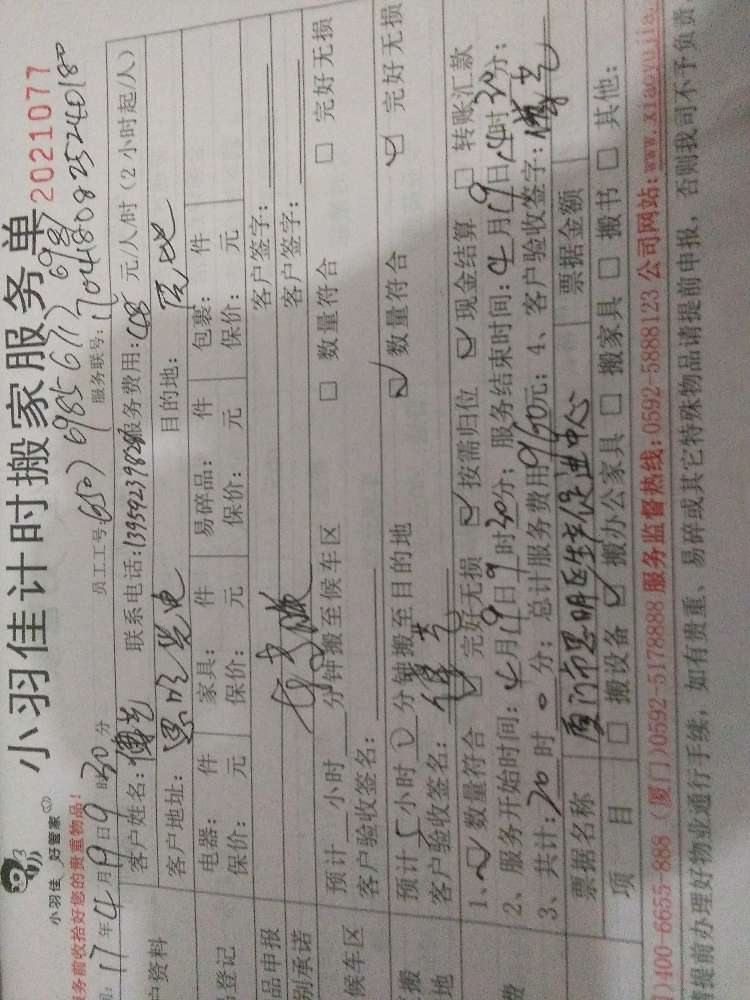 小羽佳计时搬家服务单
小羽佳 好管家
2021077
务前收拾好您的贵重物品!
17年4月9日9时30分 员工工号: 服务联号: 170418082524018
户资料 客户姓名:傅艺 联系电话:13959239828 服务费用:48元/人/时(2小时起/人)
客户地址:思明 目的地:
登记 电器: 件 家具: 件 易碎品: 件 包裹: 件
保价: 元 保价: 元 保价: 元 保价: 元
品申报 客户签字:
别承诺 客户签字:
候车区 预计 小时 分钟搬至候车区 □ 数量符合 □ 完好无损
客户验收签名:
搬 预计5小时0分钟搬至目的地 数量符合 完好无损
地 客户验收签名:傅艺
1、数量符合 完好无损 按需归位 现金结算 □ 转账汇款
2、服务开始时间:4月19日9时30分;服务结束时间:4月19日14时30分;
费 3、共计:20时0分;总计服务费用960元;4、客户验收签字:傅艺
票据名称 厦门市思明区生产力促进中心 票据金额
项 目 □ 搬设备 搬办公家具 □ 搬家具 □ 搬书 □ 其他:
)400-6655-888 (厦门)0592-5178888 服务监督热线:0592-5888123 公司网站:www.xiaoyujia.
提前办理好物业通行手续,如有贵重、易碎或其它特殊物品请提前申报,否则我司不予负责